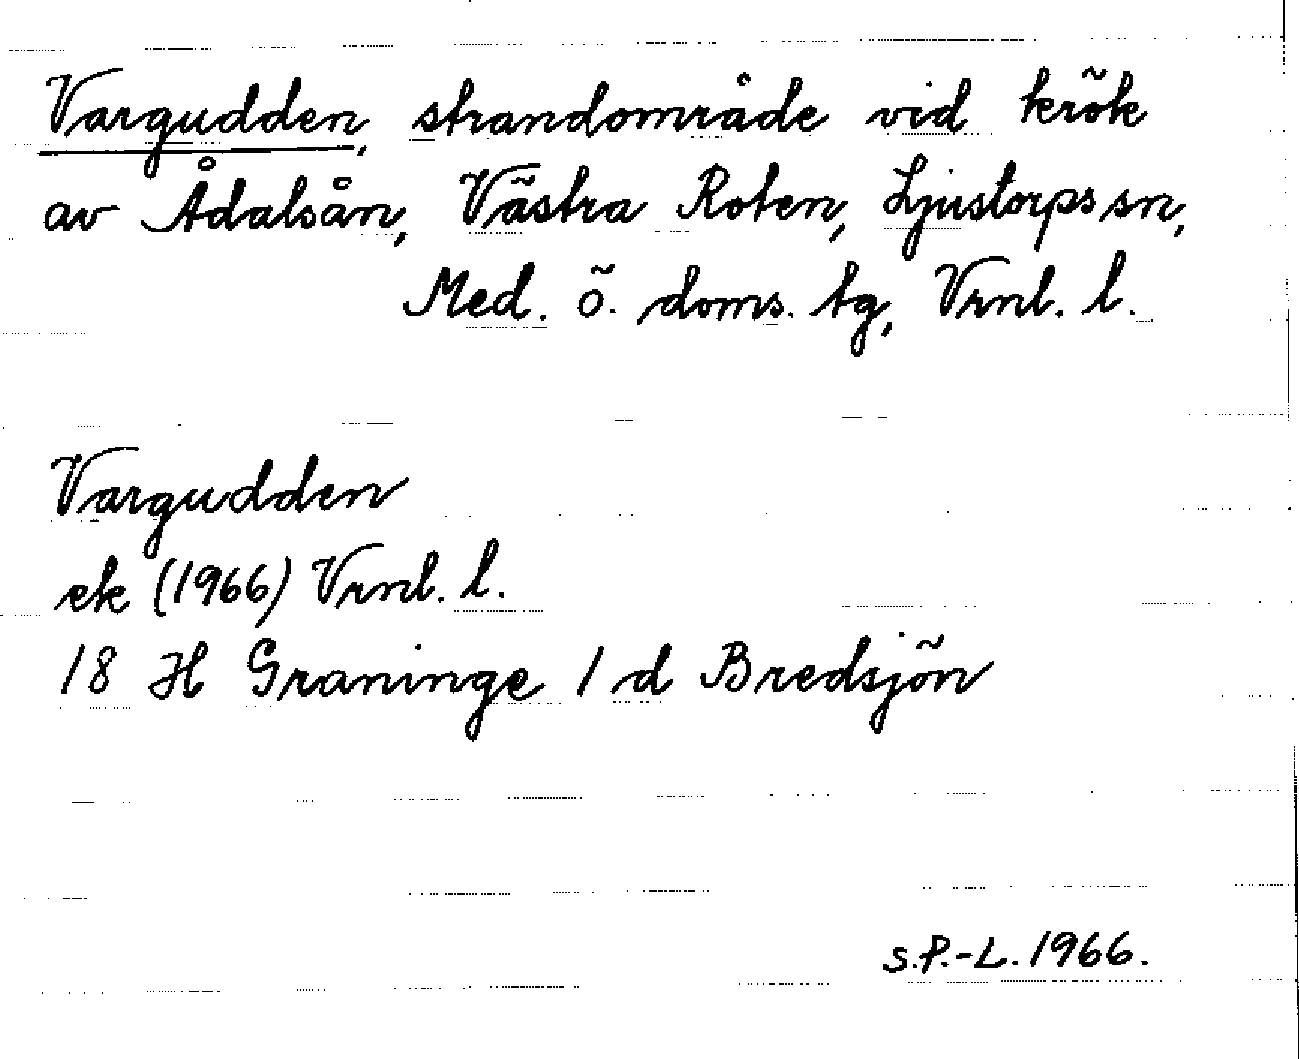 Vargudden, strandområde vid krök
av Ådalsån, Västra Roten, Ljustorps sn,
Med. ö. doms. tg, Vrnl. l.
Vargudden
ek (1966) Vrnl. l.
18 H Graninge 1 d Bredsjön
S.P.-L. 1966.